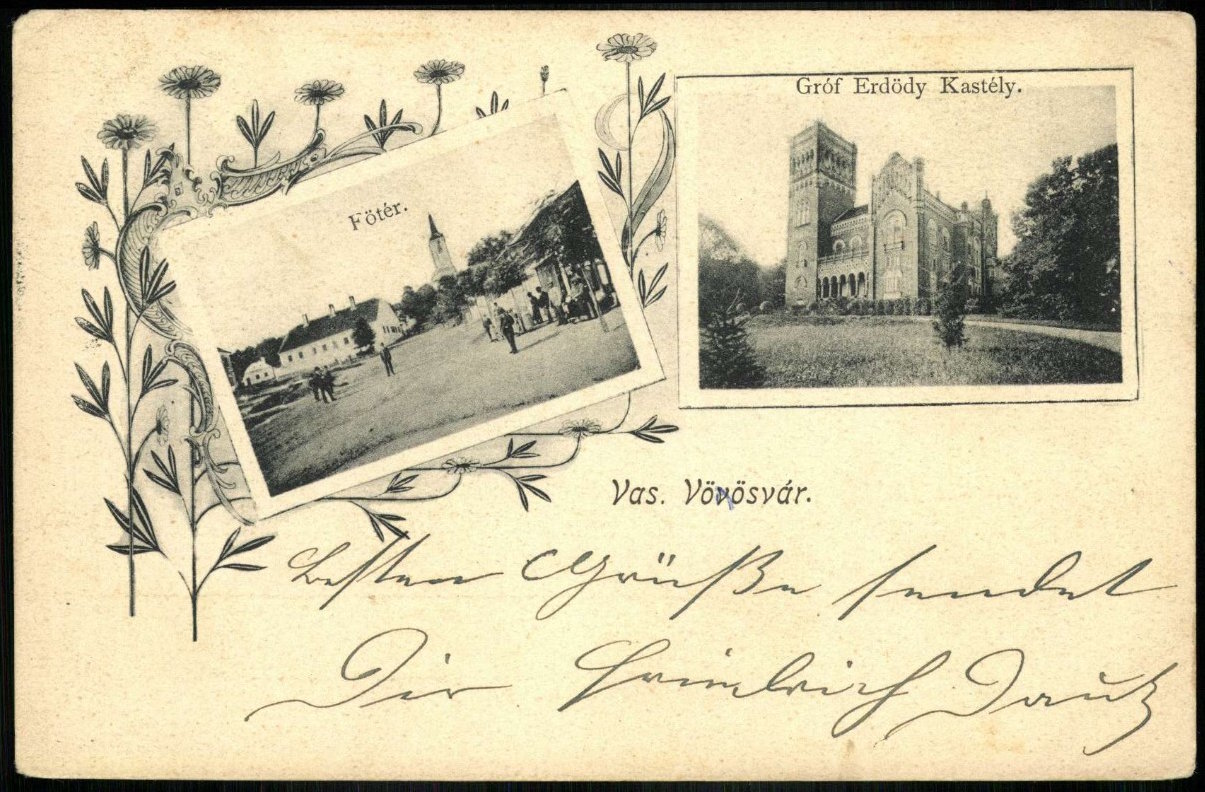 Főtér.
Gróf Erdödy Kastély.
Vas. Vövösvár.
Besten Grüße sendet
Dir Heinrich